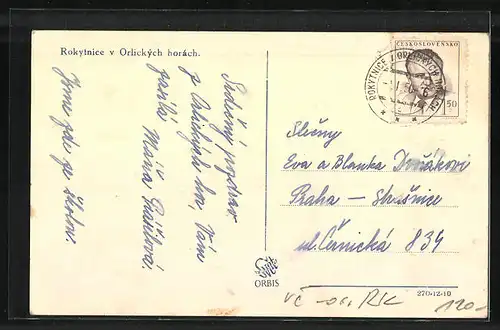 Rokytnice v Orlických horách.
Srdečný pozdrav
z Orlických hor, Vám
zasílá Máňa
Jsme zde se školou.
ČESKOSLOVENSKO
ROKYTNICE V ORLICKÝCH HORÁCH
1 50
Slečny
Eva a Blanka Dvořákovi
Praha – Strašnice
ul. Černická 834
ORBIS
270-12-10
120.-